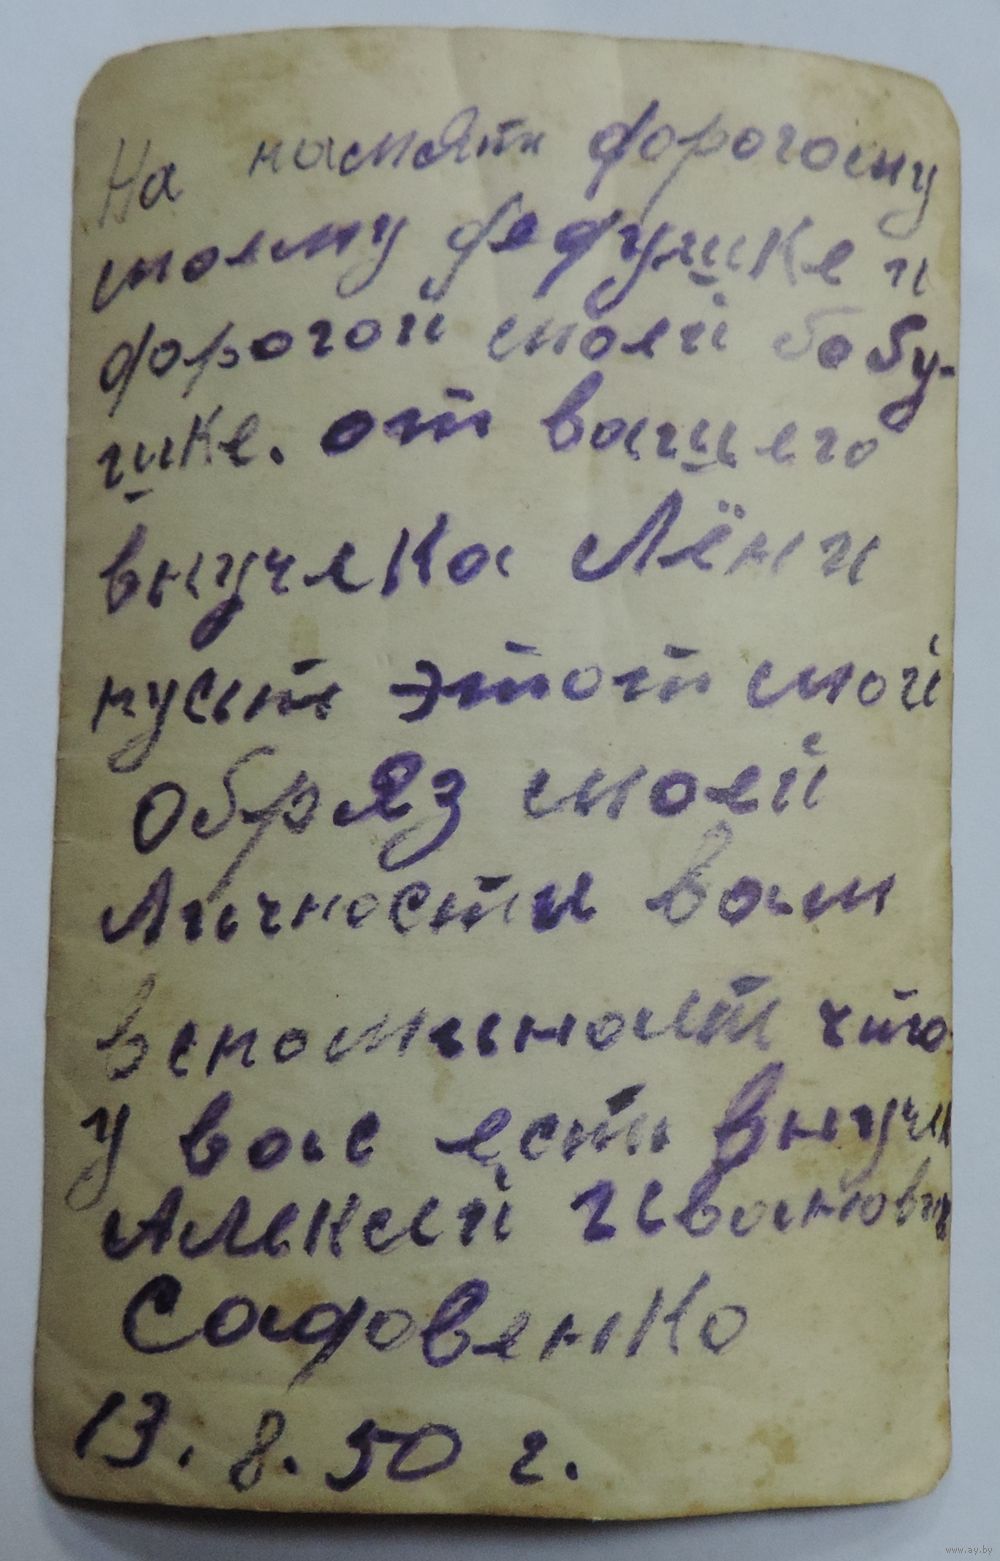 На памяти дорогому
моему дедушке и
дорогой моей бабу-
шке. от вашего
внучека Лёни
пусть этот мой
обряз моей
личности вам
вспоминает что
у вас есть внучек
Алексей Иванович
Садовенко
13. 8. 50 г.
www.ay.by